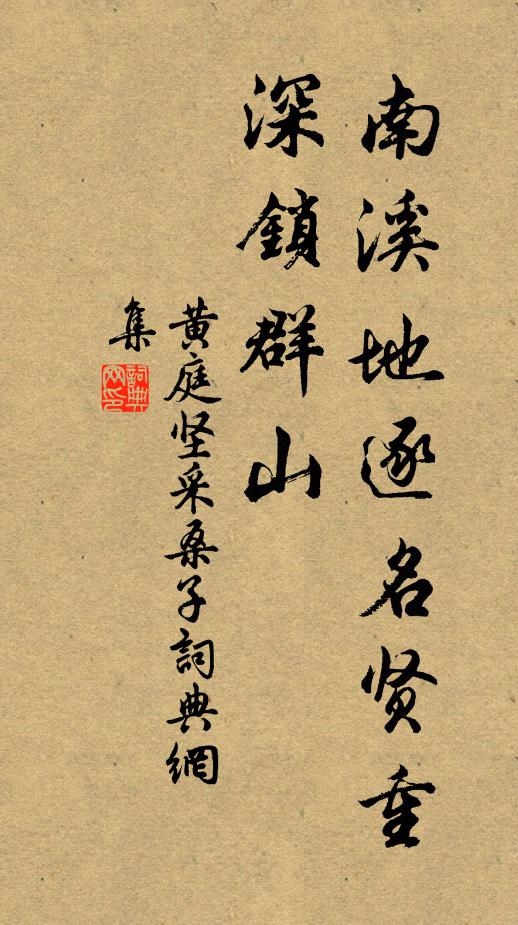 南溪地逐名贤重
深鎖群山
黄庭坚采桑子詞典網
集
詞典网印